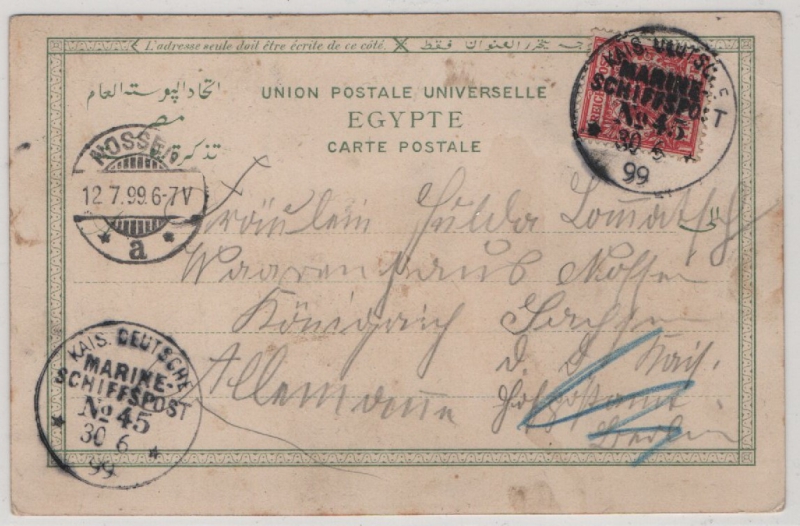 L'adresse seule doit être écrite de ce côté.
فقط العنوان يحرر
اتحاد البوستة العام
مصر
تذكرة
UNION POSTALE UNIVERSELLE
EGYPTE
CARTE POSTALE
KAIS. DEUTSCHE
MARINE-
SCHIFFSPOST
No 45
30 6
99
REICHSPOST
NOSSEN
12.7.99.6-7V
* a *
Fräulein Hulda Lomatsch
Waarenhaus Nossen
Königreich Sachsen
Allemanne
d. d. Kais.
Hofpostamt
Berlin
KAIS. DEUTSCHE
MARINE-
SCHIFFSPOST
No 45
30 6
99